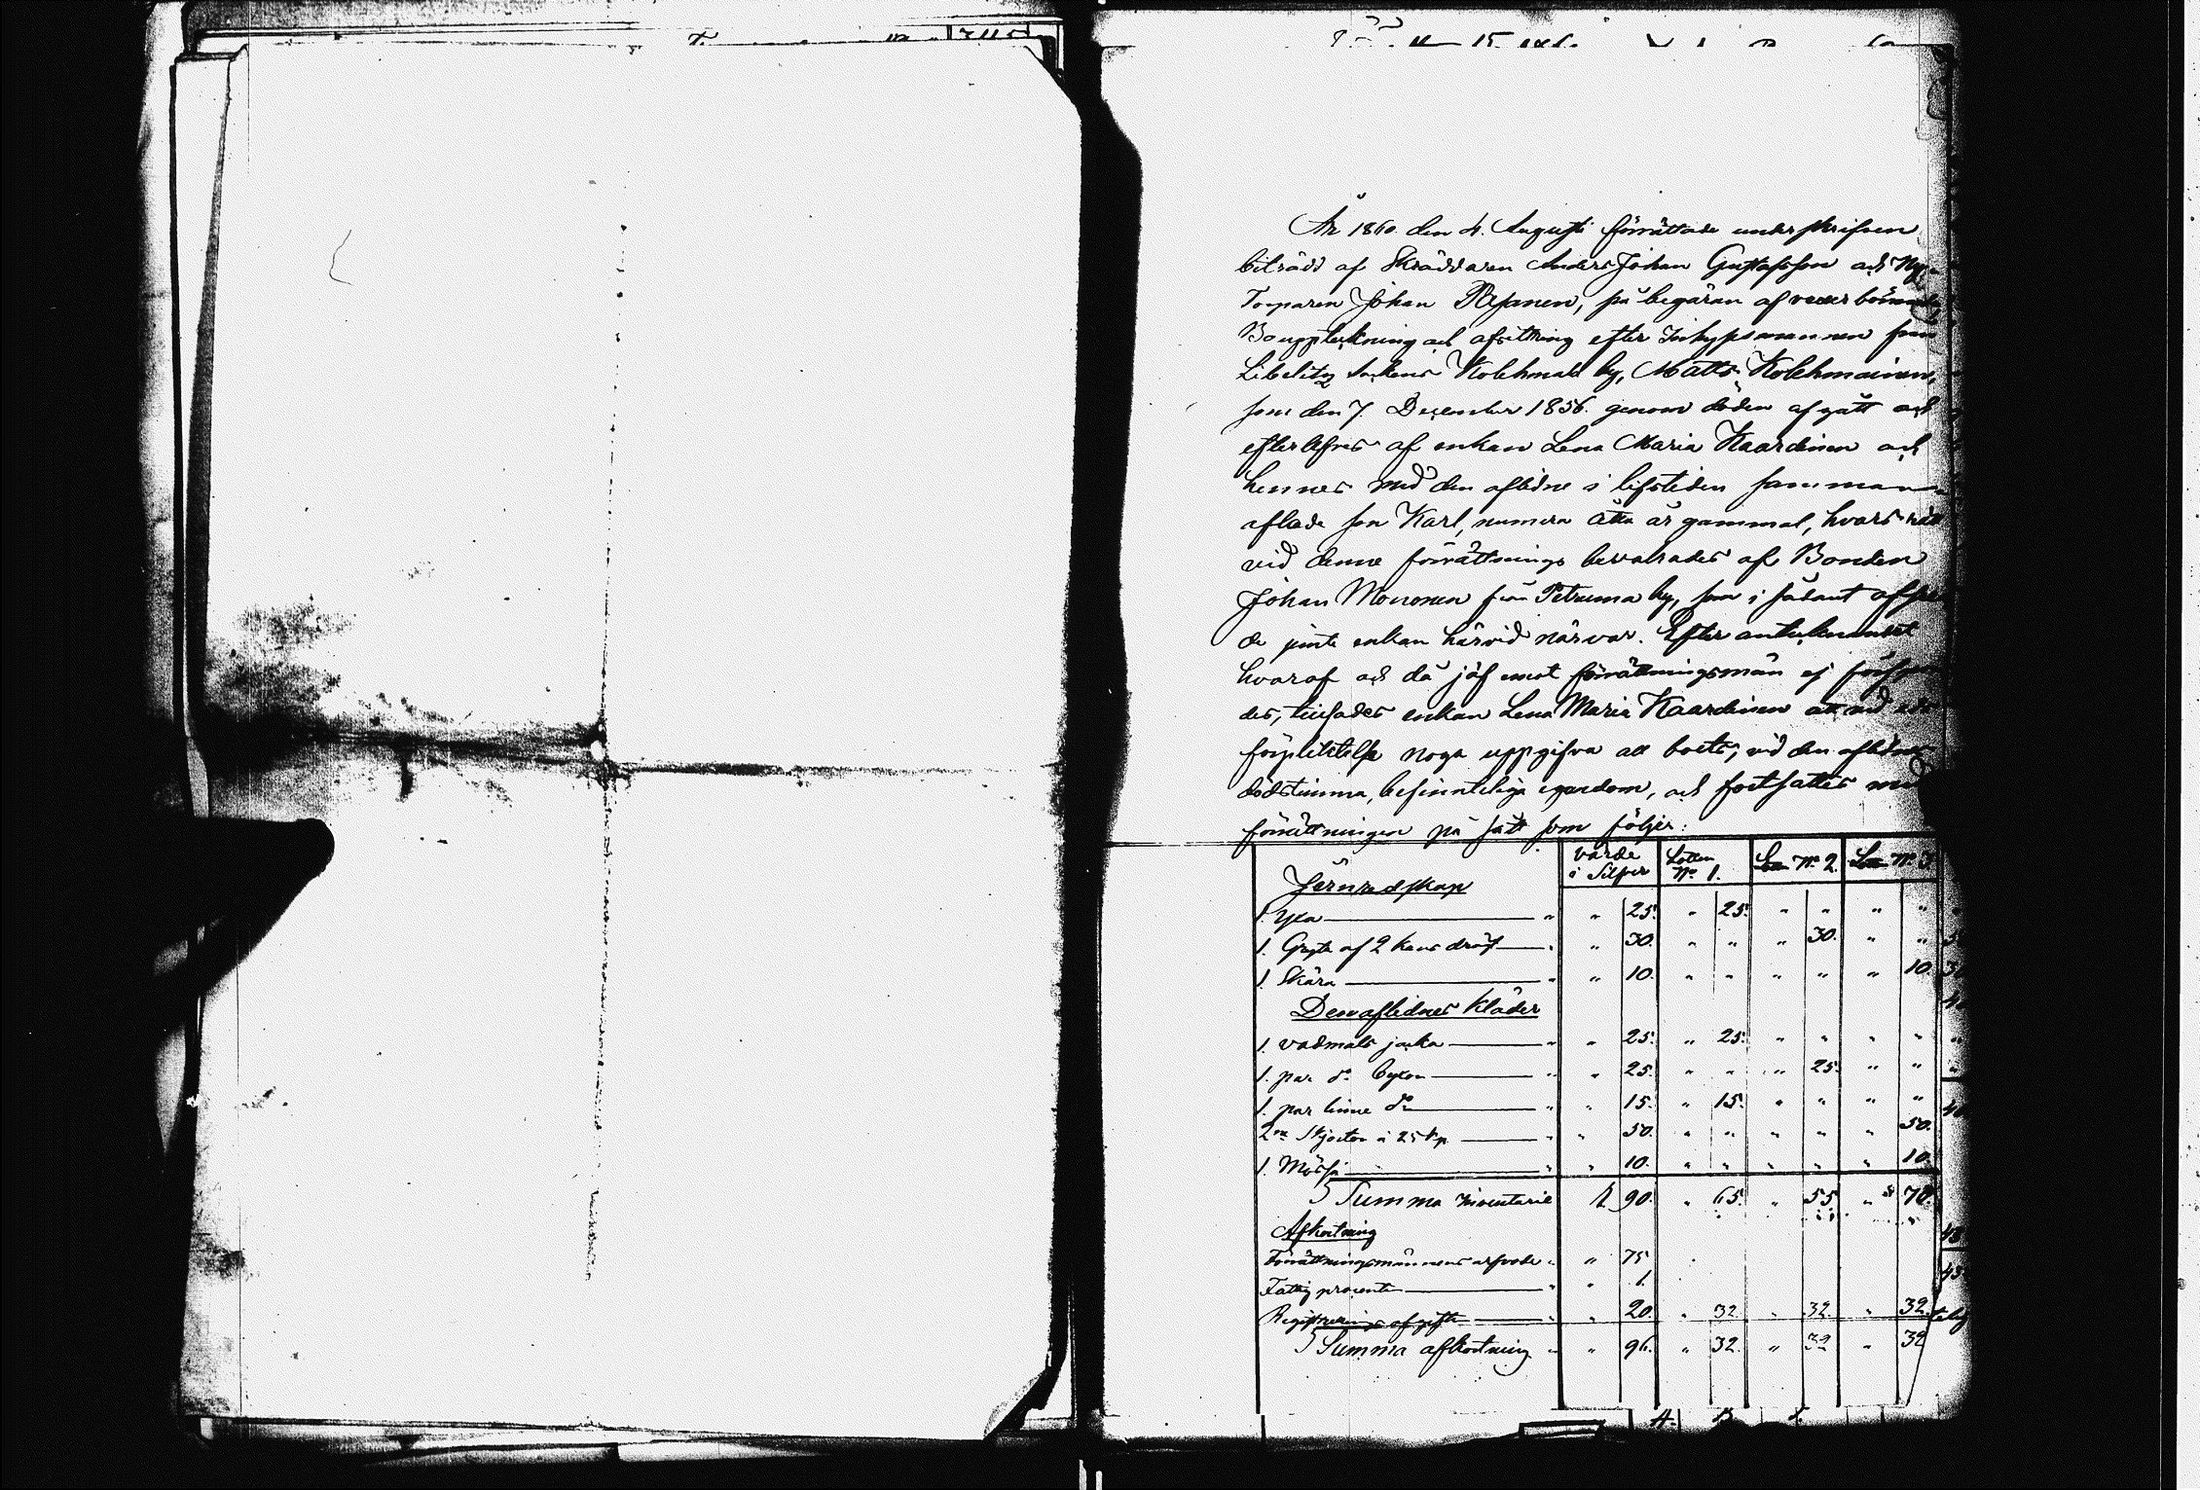 År 1860 den 4. Augusti förrättade underskrifven
biträdd af Skräddaren Anders Johan Gustafsson och
Torparen Johan Pajanen, på begäran af vederbörande
Bouppteckning och afvittring efter Inhysesmannen från
Libelitz Sockens Kolehmala by, Matts Kolehmainen,
som den 7. December 1856. genom döden afgått och
efterlefves af enkan Lena Maria Kaardinen och
hennes med den aflidne i lifstiden samman
aflade son Karl, numera åtta år gammal, hvars rätt
vid denne förrättnings bevakades af Bonden
Johan Mononen från Petruma by, som i sådant afse
de jemte enkan härvid närvar. Efter antecknandet
hvaraf och då jäf emot förrättningsmän ej
des, tillsades enkan Lena Maria Kaardinen att med
förpligtelse noga uppgifva all boets, vid den aflidnes
dödstimma, befinnteliga egendom, och fortsattes med
förrättningen på sätt som följer:
värde i Silfver Lotten No 1. Lott No 2. Lott No 3
Jernredskap
1. Yxa " " 25. " 25. " " " "
1. Gryta af 2 kans dräg " " 30. " " " 30. " "
1. Skära " " 10. " " " " " 10.
Den aflidnes Kläder
1. vadmals jacka " " 25. " 25. " " " "
1. par do byxor " " 25. " " " 25. " "
1. par linne do " " 15. " 15. " " " "
2ne Skjortor a 25 kp " " 50. " " " " " 50.
1. Mössa " " 10. " " " " " 10.
Summa Inventarie 1 90. " 65. " 55 " 70.
Afkortning
Förrättningsmännens arfvode " " 75
Fattig procenten " " 1.
Registrerings afgift " " 20. " 32 " 32. " 32.
Summa afkortning " " 96. " 32. " 32 " 32